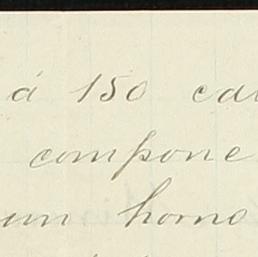 á 150 cal
compone
um homo